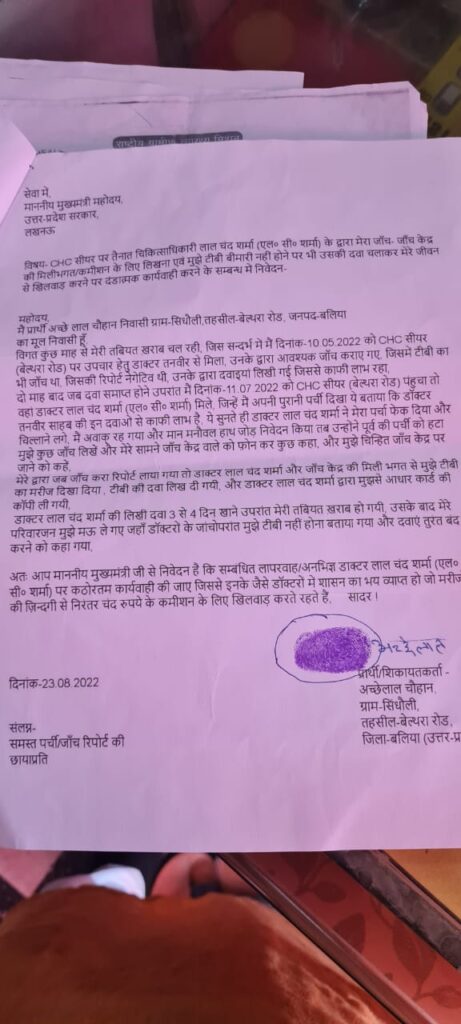 राष्ट्रीय ग्रामीण स्वास्थ्य मिशन
सेवा में,
माननीय मुख्यमंत्री महोदय,
उत्तर-प्रदेश सरकार,
लखनऊ
विषय- CHC सीयर पर तैनात चिकित्साधिकारी लाल चंद शर्मा (एल० सी० शर्मा) के द्वारा मेरा जाँच- जाँच केंद्र
की मिलीभगत/कमिशन के लिए लिखना एवं मुझे टीबी बीमारी नही होने पर भी उसकी दवा चलाकर मेरे जीवन
से खिलवाड़ करने पर दंडात्मक कार्यवाही करने के सम्बन्ध में निवेदन-
महोदय,
मै प्रार्थी अच्छे लाल चौहान निवासी ग्राम-सिधौली,तहसील-बेल्थरा रोड, जनपद-बलिया
का मूल निवासी हूँ.
विगत कुछ माह से मेरी तबियत खराब चल रही, जिस सन्दर्भ में मैं दिनांक-10.05.2022 को CHC सीयर
(बेल्थरा रोड) पर उपचार हेतु डाक्टर तनवीर से मिला, उनके द्वारा आवश्यक जाँच कराए गए, जिसमे टीबी का
भी जाँच था, जिसकी रिपोर्ट नेगेटिव थी, उनके द्वारा दवाइयां लिखी गई जिससे काफी लाभ रहा,
दो माह बाद जब दवा समाप्त होने उपरांत मैं दिनांक-11.07.2022 को CHC सीयर (बेल्थरा रोड) पंहुचा तो
वहां डाक्टर लाल चंद शर्मा (एल० सी० शर्मा) मिले, जिन्हें मैं अपनी पुरानी पर्ची दिखा ये बताया कि डॉक्टर
तनवीर साहब की इन दवाओ से काफी लाभ है, ये सुनते ही डाक्टर लाल चंद शर्मा ने मेरा पर्चा फेक दिया और
चिल्लाने लगे, मैं अवाक् रह गया और मान मनौवल हाथ जोड़ निवेदन किया तब उन्होने पूर्व की पर्ची को हटा
मुझे कुछ जाँच लिखे और मेरे सामने जाँच केंद्र वाले को फोन कर कुछ कहा, और मुझे चिन्हित जाँच केंद्र पर
जाने को कहे,
मेरे द्वारा जब जाँच करा रिपोर्ट लाया गया तो डाक्टर लाल चंद शर्मा और जाँच केंद्र की मिली भगत से मुझे टीबी
का मरीज दिखा दिया , टीबी की दवा लिख दी गयी, और डाक्टर लाल चंद शर्मा द्वारा मुझसे आधार कार्ड की
कॉपी ली गयी,
डाक्टर लाल चंद शर्मा की लिखी दवा 3 से 4 दिन खाने उपरांत मेरी तबियत खराब हो गयी, उसके बाद मेरे
परिवारजन मुझे मऊ ले गए जहाँ डॉक्टरो के जांचोपरांत मुझे टीबी नही होना बताया गया और दवाएं तुरत बंद
करने को कहा गया,
अतः आप माननीय मुख्यमंत्री जी से निवेदन है कि सम्बंधित लापरवाह/अनभिज्ञ डाक्टर लाल चंद शर्मा (एल०
सी० शर्मा) पर कठोरतम कार्यवाही की जाए जिससे इनके जैसे डॉक्टरो मे शासन का भय व्याप्त हो जो मरीज
की ज़िन्दगी से निरतर चंद रुपये के कमीशन के लिए खिलवाड़ करते रहते हैं, सादर !
अच्छेलाल
दिनांक-23.08.2022
प्रार्थी/शिकायतकर्ता -
अच्छेलाल चौहान,
ग्राम-सिधौली,
तहसील-बेल्थरा रोड,
जिला-बलिया (उत्तर-प्र
संलग्न-
समस्त पर्ची/जाँच रिपोर्ट की
छायाप्रति